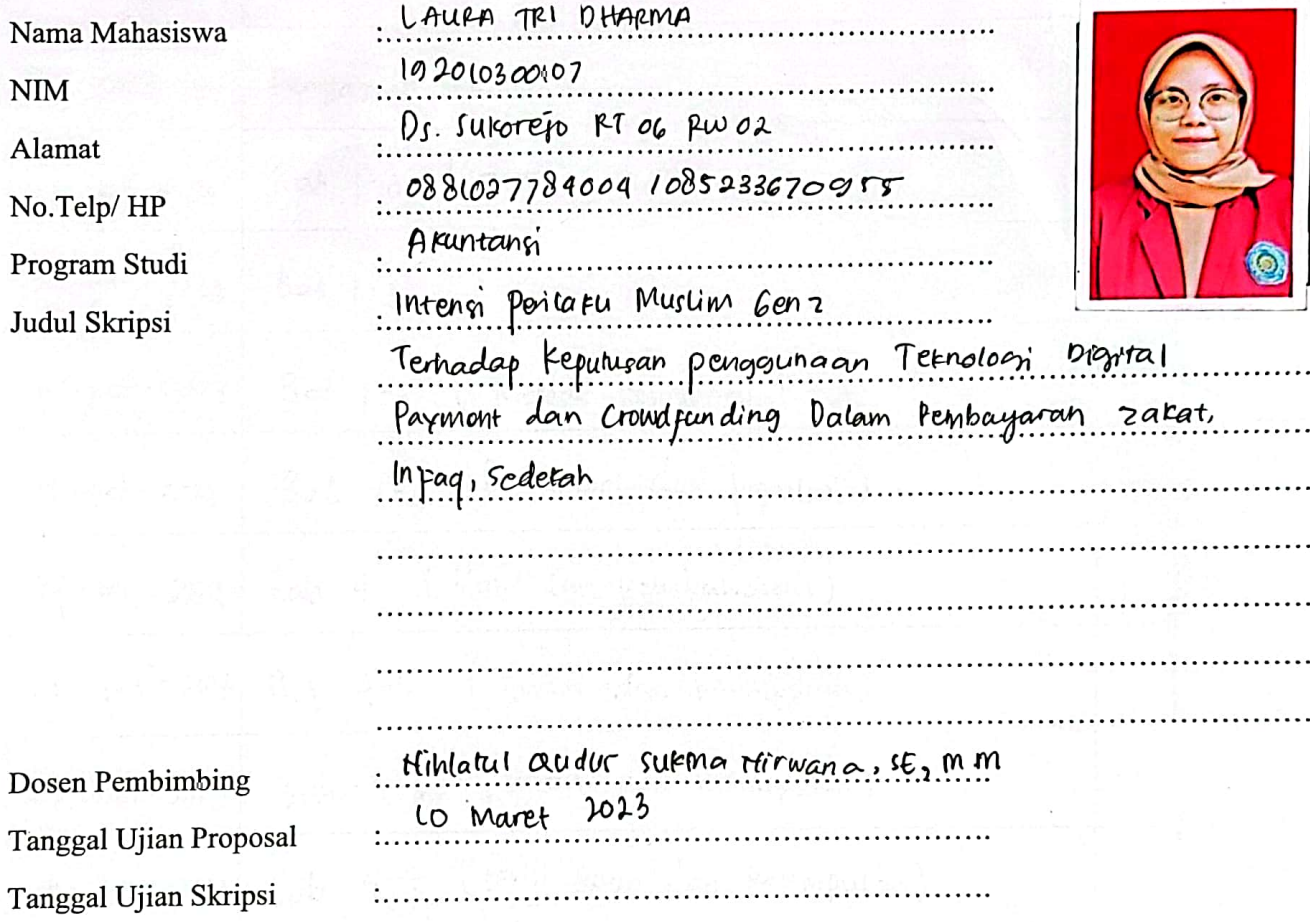 Nama Mahasiswa : LAURA TRI DHARMA
NIM : 192010300107
Alamat : Ds. Sukorejo RT 06 RW 02
No.Telp/ HP : 0881027784004 / 085233670955
Program Studi : Akuntansi
Judul Skripsi : Intensi Perilaku Muslim Gen z
Terhadap Keputusan penggunaan Teknologi Digital
Payment dan Crowdfunding Dalam Pembayaran zakat,
Infaq, Sedekah
Dosen Pembimbing : Hihlatul Qudur Sukma Hirwana, SE, MM
Tanggal Ujian Proposal : 10 Maret 2023
Tanggal Ujian Skripsi :